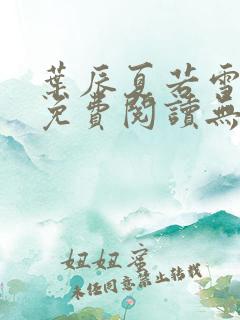 葉辰夏若雪
免費閱讀無
妞妞蜜
未經同意禁止轉載